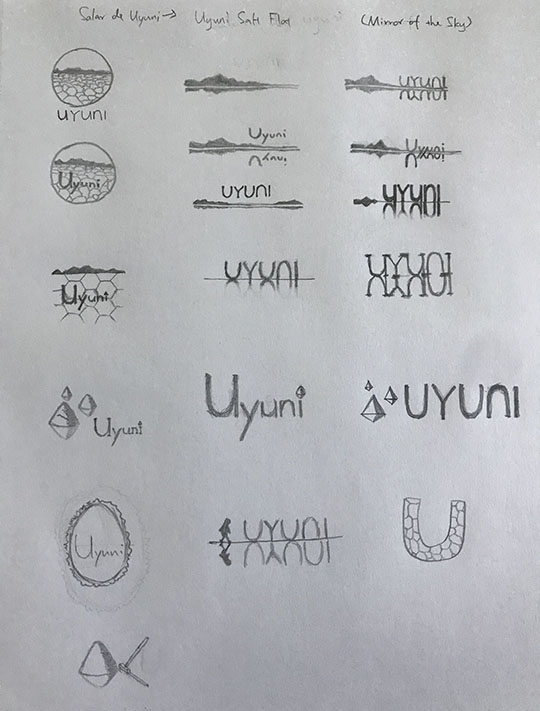 Salar de Uyuni → Uyuni Salt Flat (Mirror of the Sky)
UYUNI
UYUNI
Uyuni
Uyuni
Uyuni
Uyuni
Uyuni
UYUNI
UYUNI
UYUNI
Uyuni
UYUNI
UYUNI
Uyuni
Uyuni
UYUNI
Uyuni
UYUNI
U